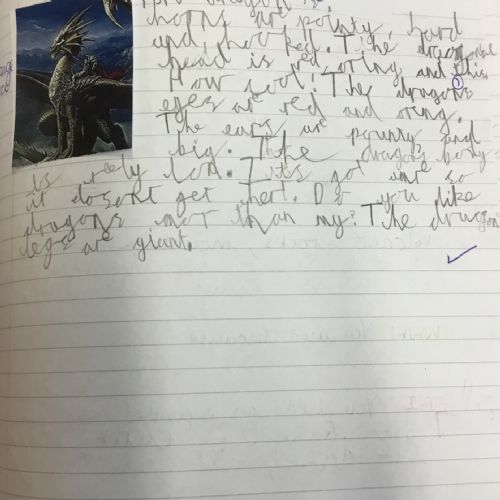 horns are pointy, hard
and, hooked. The dragons
head is red, oring and this
How cool! The dragons
eyes are red and oring.
The ears are pounty and
big. The dragons body
is reely lon. It's got ame so
it dosent get hert. Do you like
dragons mor than my? The dragon
legs are giant.